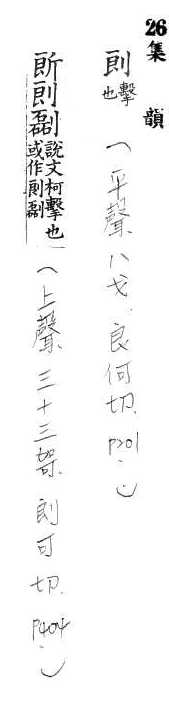 26 集韻
剆 擊也 (平聲八戈.良何切.p201.)
剆 說文柯擊也或作剆 (上聲三十三哿.朗可切.p404.)